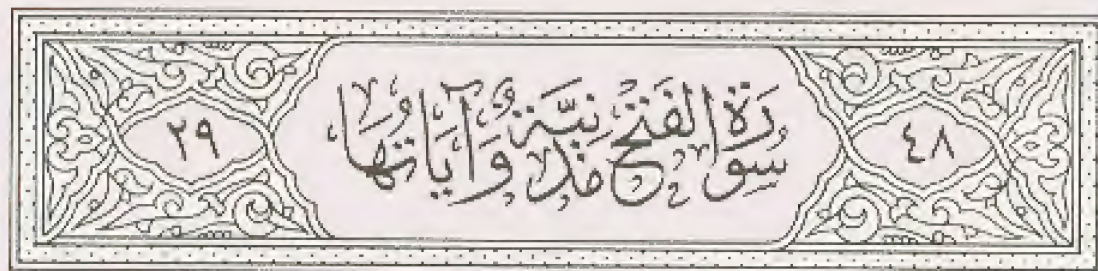 ٤٨ سُورَةُ الفَتْحِ مَدَنِيَّةٌ وَآيَاتُهَا ٢٩